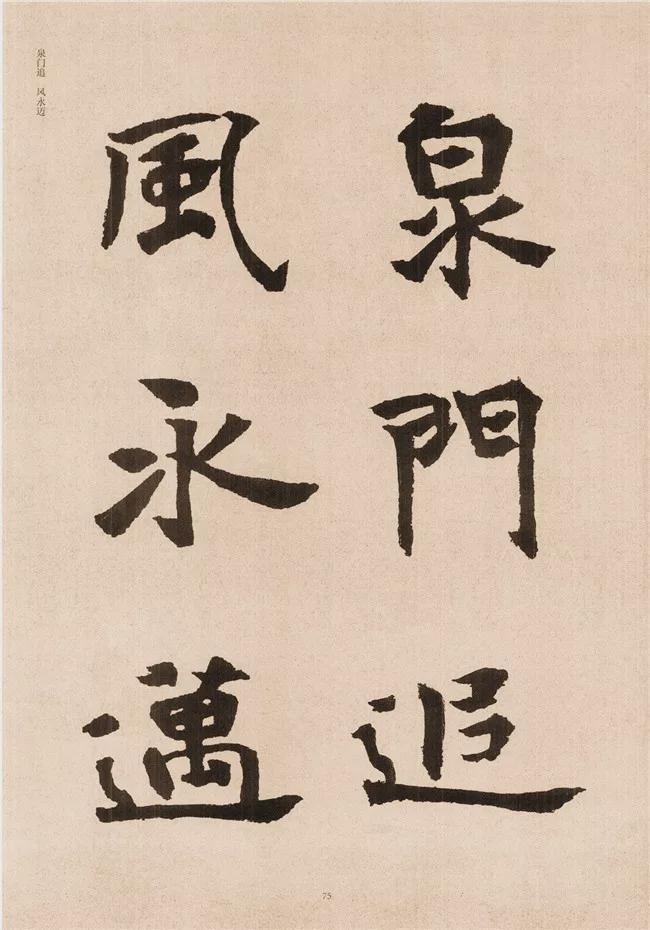 泉門追
風永邁
泉门追　风永迈
75